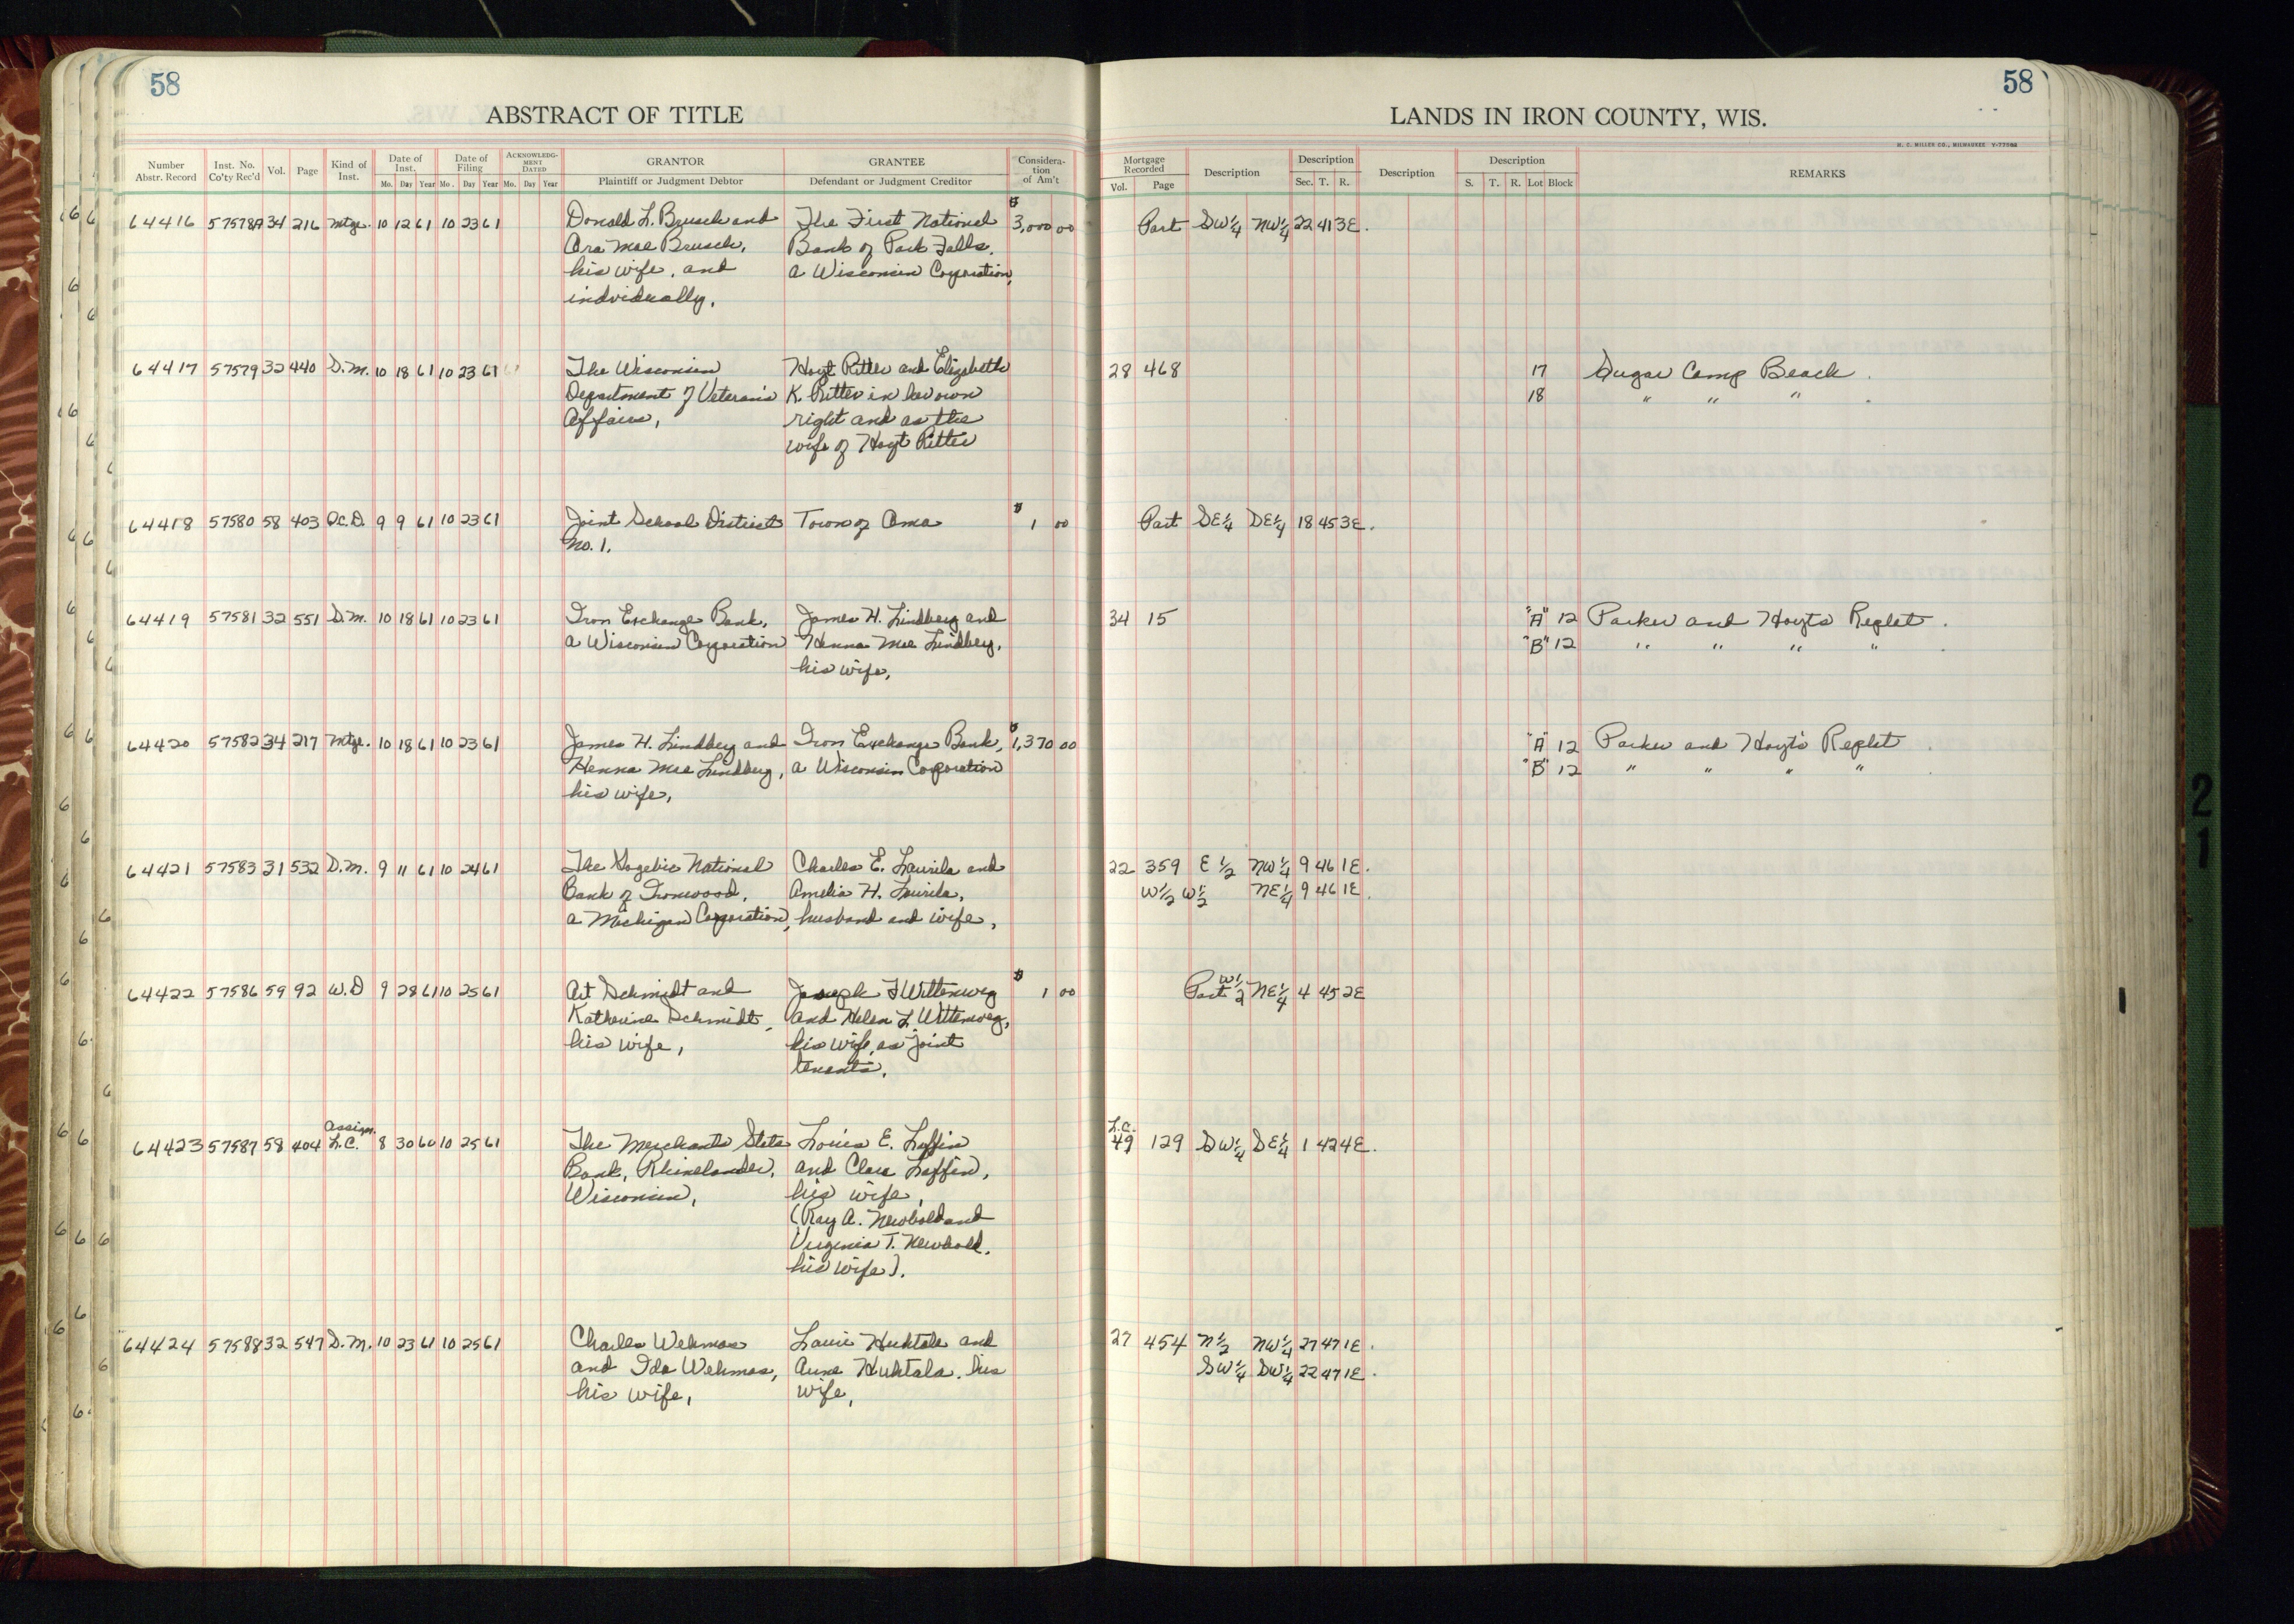 58
ABSTRACT OF TITLE
Number Abstr. Record Inst. No. Co'ty Rec'd Vol. Page Kind of Inst. Date of Inst. Mo. Day Year Date of Filing Mo. Day Year ACKNOWLEDGMENT DATED Mo. Day Year GRANTOR Plaintiff or Judgment Debtor GRANTEE Defendant or Judgment Creditor Consideration of Am't
64416 57578A 34 216 Mtge. 10 12 61 10 23 61 Donald L. Brusch and The First National $3,000 00
Ora Mae Brusch, Bank of Park Falls,
his wife, and a Wisconsin Corporation,
individually,
64417 57579 32 440 D.M. 10 18 61 10 23 61 The Wisconsin Hoyt Ritter and Elizabeth
Department of Veteran's K. Ritter in her own
Affairs, right and as the
wife of Hoyt Ritter
64418 57580 58 403 Qc.D. 9 9 61 10 23 61 Joint School District Town of Oma $1 00
No. 1.
64419 57581 32 551 D.M. 10 18 61 10 23 61 Iron Exchange Bank, James H. Lindberg and
a Wisconsin Corporation Henna Mae Lindberg,
his wife,
64420 57582 34 217 Mtge. 10 18 61 10 23 61 James H. Lindberg and Iron Exchange Bank, $1,370 00
Henna Mae Lindberg, a Wisconsin Corporation
his wife,
64421 57583 31 532 D.M. 9 11 61 10 24 61 The Gogebic National Charles E. Laurila and
Bank of Ironwood, Amelia H. Laurila,
a Michigan Corporation, husband and wife,
64422 57586 59 92 W.D 9 28 61 10 25 61 Art Schmidt and Joseph F Wittenweg $1 00
Katherine Schmidt, and Helen L. Wittenweg,
his wife, his wife, as joint
tenants.
Assign.
64423 57587 58 404 L.C. 8 30 60 10 25 61 The Merchants State Louis E. Laffin
Bank, Rhinelander, and Clara Laffin,
Wisconsin, his wife,
(Ray A. Newbold and
Virginia T. Newbold,
his wife).
64424 57588 32 547 D.M. 10 23 61 10 25 61 Charles Wehmas Lauri Huhtala and
and Ida Wehmas, Aune Huhtala, his
his wife, wife,
58
LANDS IN IRON COUNTY, WIS.
H. C. MILLER CO., MILWAUKEE Y-77982
Mortgage Recorded Vol. Page Description Description Sec. T. R. Description Description S. T. R. Lot Block REMARKS
Part SW¼ NW¼ 22 41 3E.
28 468 17 Sugar Camp Beach.
18 " " " .
Part SE¼ SE¼ 18 45 3E.
34 15 "A" 12 Parker and Hoyts Replat.
"B" 12 " " " " .
"A" 12 Parker and Hoyt's Replat.
"B" 12 " " " "
22 359 E½ NW¼ 9 46 1E.
W½ W½ NE¼ 9 46 1E.
Part W½ NE¼ 4 45 2E
L.C.
49 129 SW¼ SE¼ 1 42 4E.
27 454 N½ NW¼ 27 47 1E.
SW¼ SW¼ 22 47 1E.
21